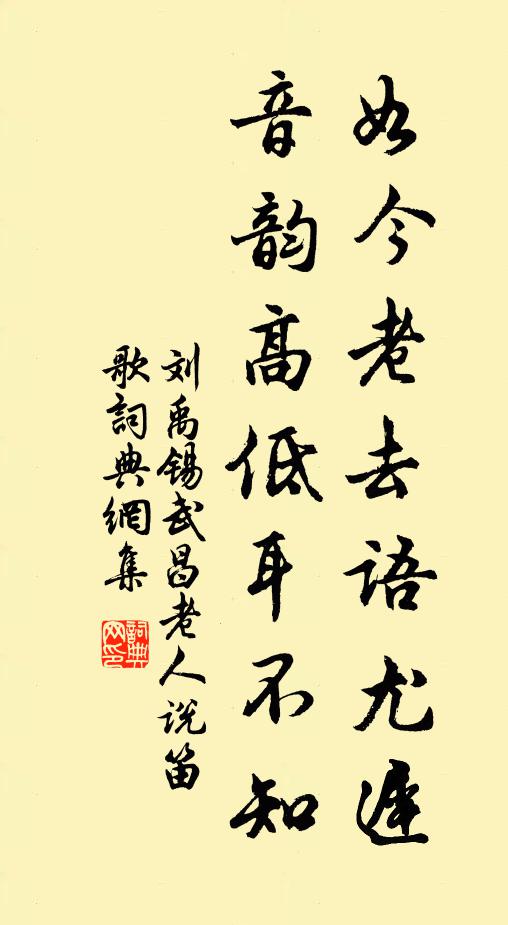 如今老去语尤遲
音韵高低耳不知
刘禹锡武昌老人说笛
歌詞典網集
詞典
网印